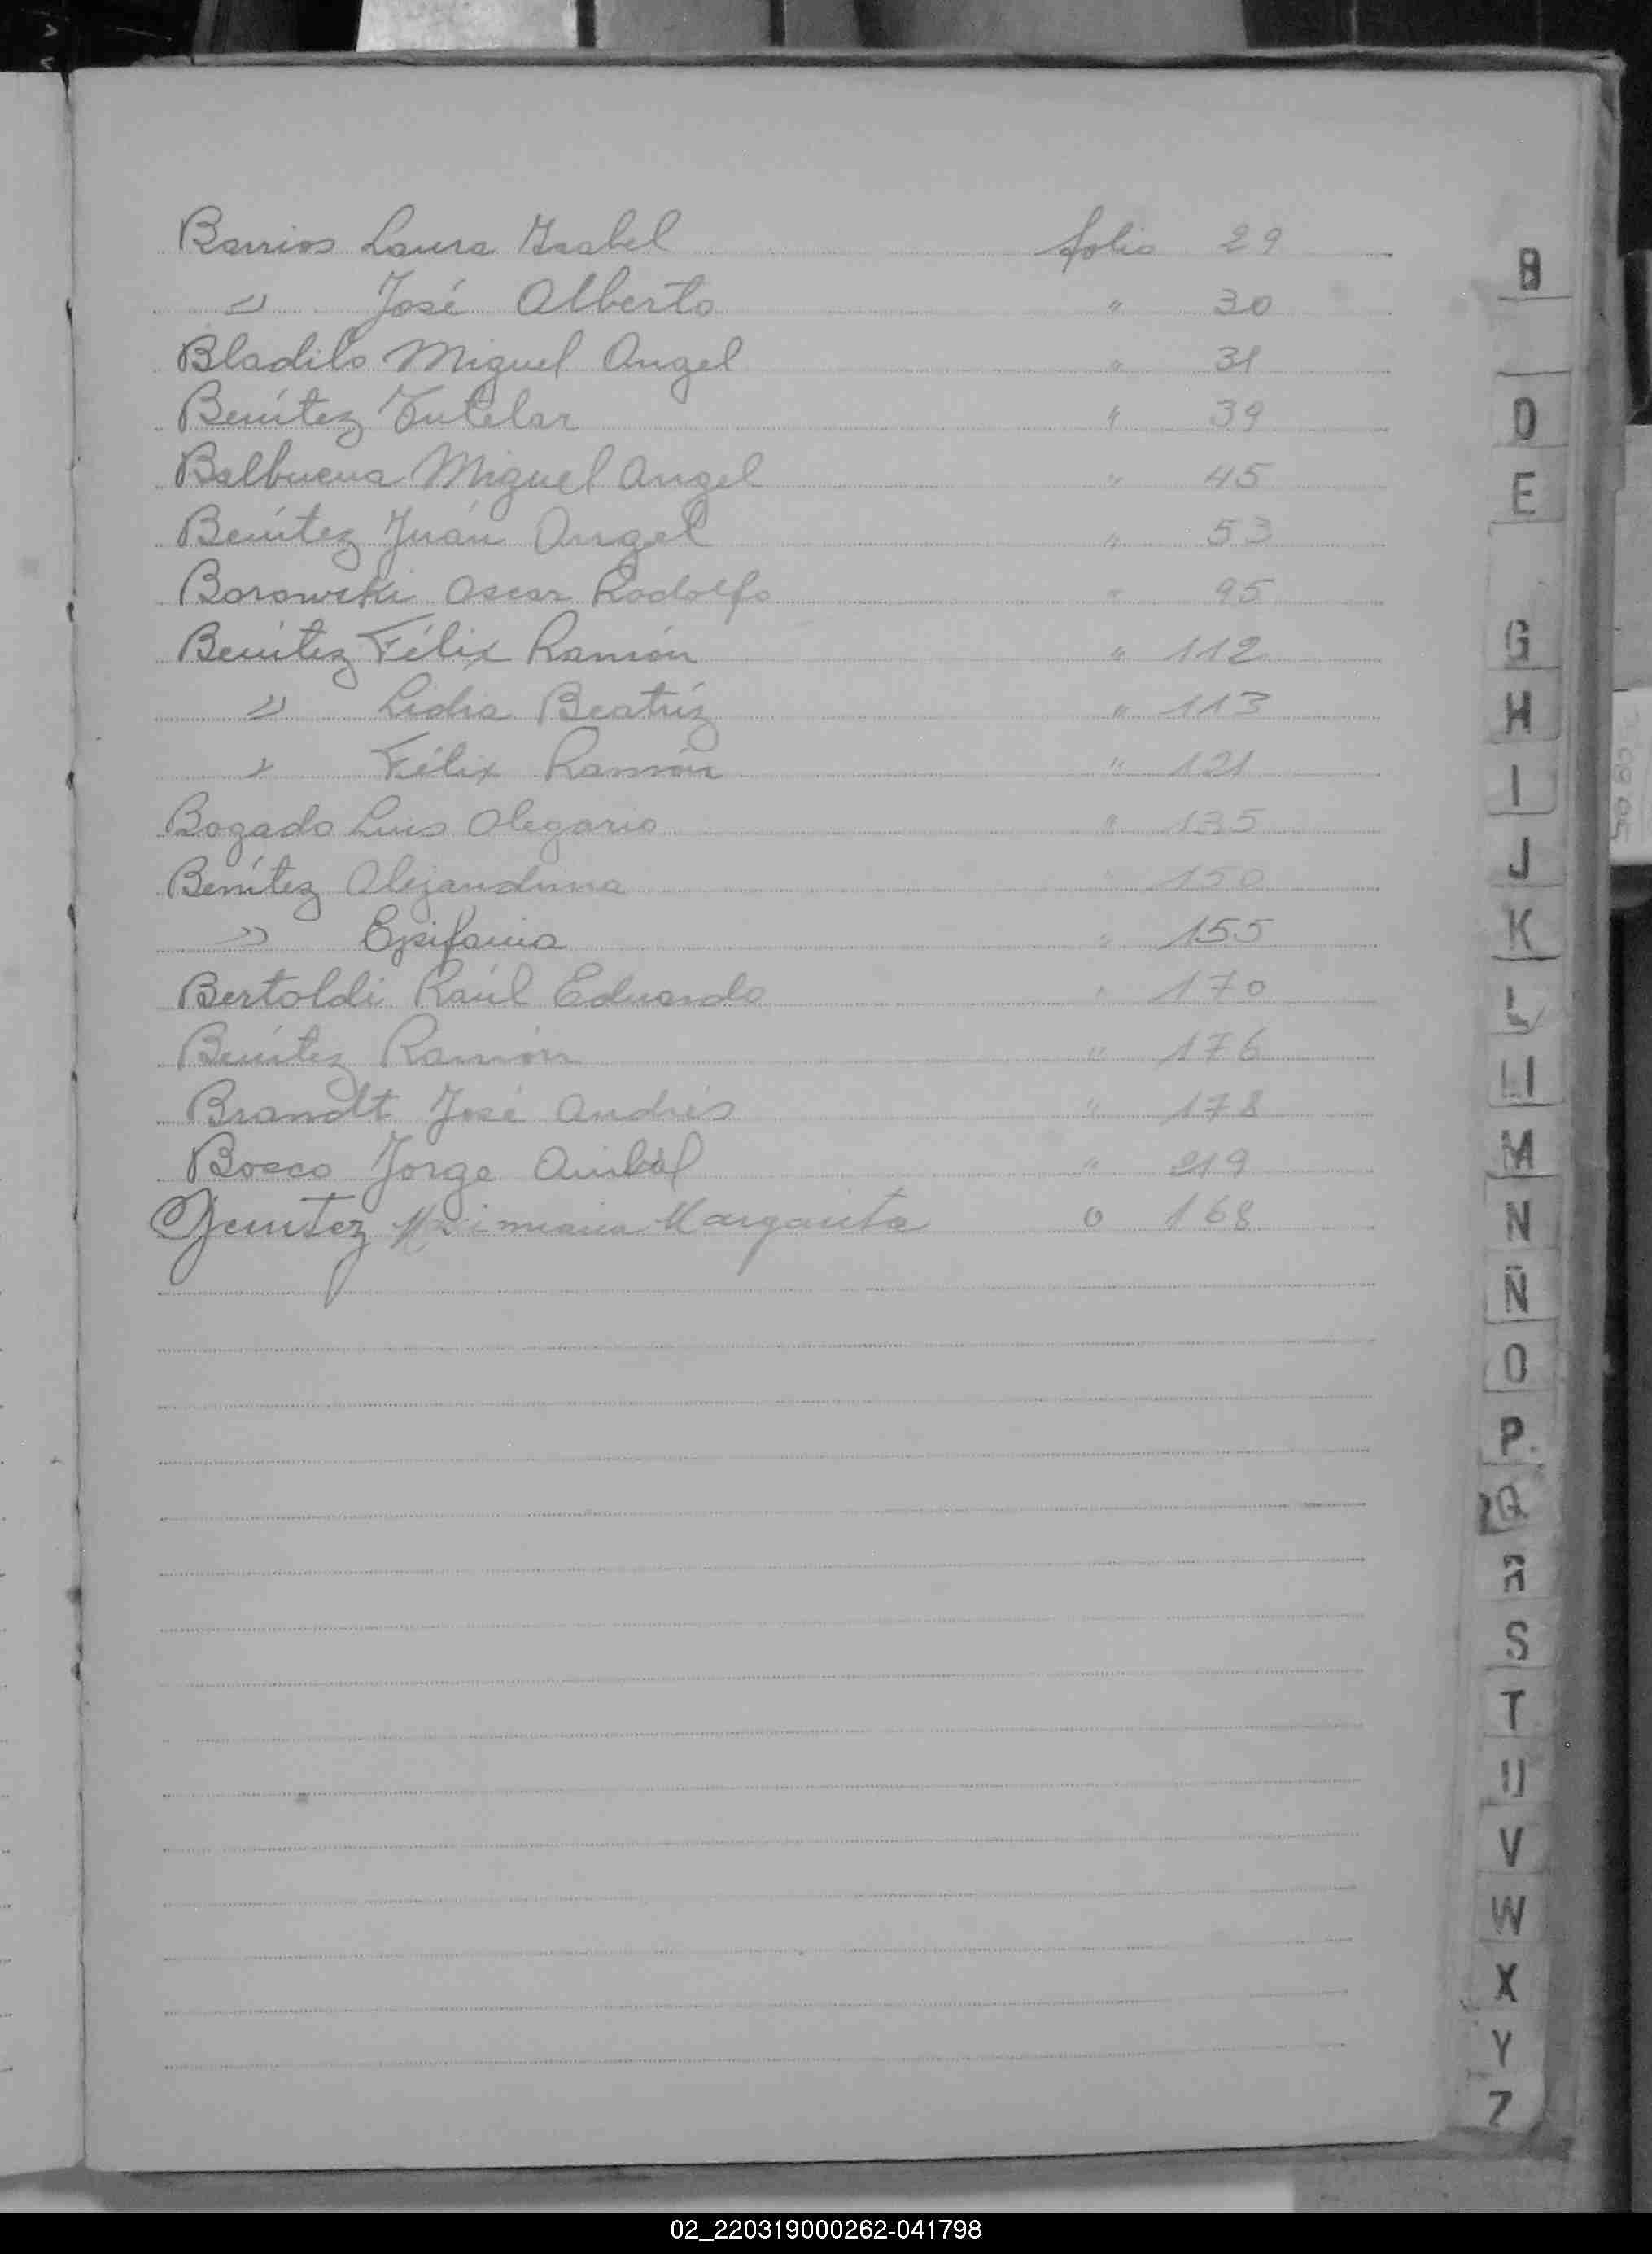 Barrios Laura Isabel folio 29
" José Alberto " 30
Bladilo Miguel Angel " 31
Benítez Tutelar " 39
Balbuena Miguel Angel " 45
Benítez Juán Angel " 53
Borowski Oscar Rodolfo " 95
Benítez Félix Ramón " 112
" Lidia Beatríz " 113
" Félix Ramón " 121
Bogado Luis Olegario " 135
Benítez Alejandrina " 150
" Epifania " 155
Bertoldi Raúl Eduardo " 170
Benítez Ramón " 176
Brandt José Andrés " 178
Bosco Jorge Anibal " 219
Benitez Margarita o 168
B
D
E
G
H
I
J
K
L
Ll
M
N
Ñ
O
P
Q
R
S
T
U
V
W
X
Y
Z
02_220319000262-041798